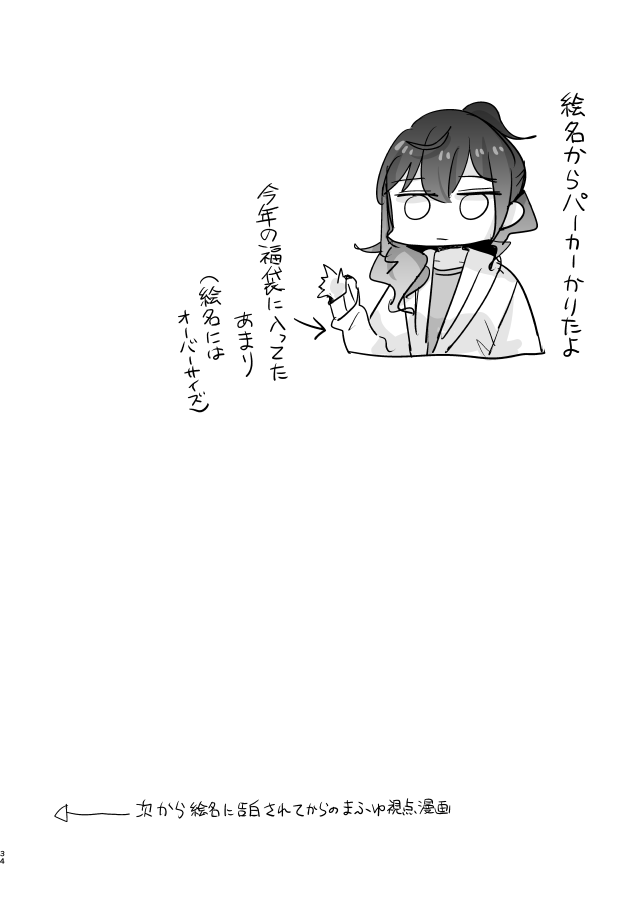 絵名からパーカーかりたよ
今年の福袋に入ってた
あまり
(絵名には
オーバーサイズ)
次から絵名に告白されてからのまふゆ視点漫画
34